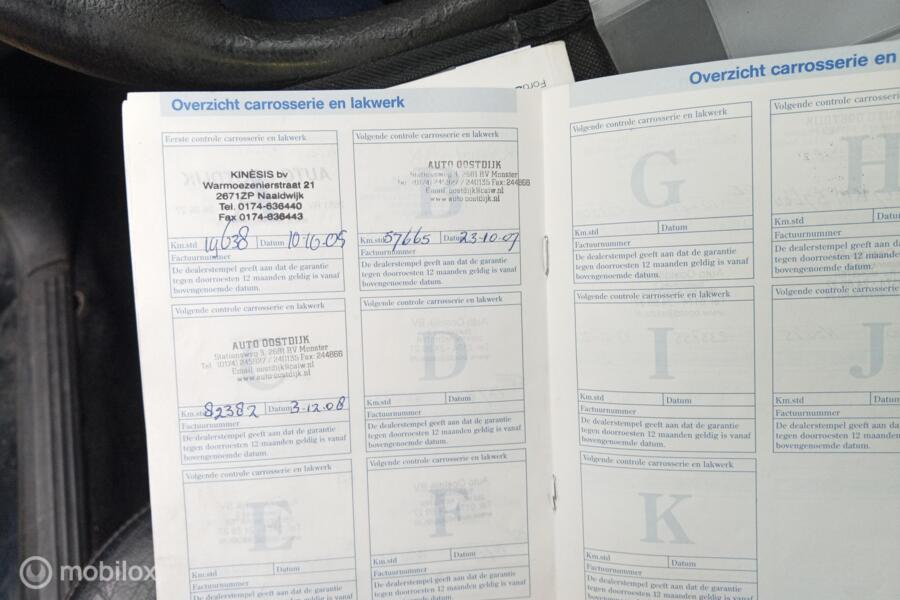 Overzicht carrosserie en lakwerk
Eerste controle carrosserie en lakwerk
KINÈSIS bv
Warmoezenierstraat 21
2671ZP Naaldwijk
Tel. 0174-636440
Fax 0174-636443
Km.std 14638 Datum 10-10-05
Factuurnummer
De dealerstempel geeft aan dat de garantie
tegen doorroesten 12 maanden geldig is vanaf
bovengenoemde datum.
Volgende controle carrosserie en lakwerk
B
AUTO OOSTDIJK
Stationsweg 3, 2681 RV Monster
Tel. (0174) 245927 / 240135 Fax: 244866
Email: oostdijk@caiw.nl
www.auto oostdijk.nl
Km.std 57665 Datum 23-10-07
Factuurnummer
De dealerstempel geeft aan dat de garantie
tegen doorroesten 12 maanden geldig is vanaf
bovengenoemde datum.
Volgende controle carrosserie en lakwerk
C
AUTO OOSTDIJK
Stationsweg 3, 2681 RV Monster
Tel. (0174) 245927 / 240135 Fax: 244866
Email: oostdijk@caiw.nl
www.auto oostdijk.nl
Km.std 82382 Datum 3-12-08
Factuurnummer
De dealerstempel geeft aan dat de garantie
tegen doorroesten 12 maanden geldig is vanaf
bovengenoemde datum.
Volgende controle carrosserie en lakwerk
D
Km.std Datum
Factuurnummer
De dealerstempel geeft aan dat de garantie
tegen doorroesten 12 maanden geldig is vanaf
bovengenoemde datum.
Volgende controle carrosserie en lakwerk
E
Km.std Datum
Factuurnummer
De dealerstempel geeft aan dat de garantie
Volgende controle carrosserie en lakwerk
F
Km.std Datum
Factuurnummer
De dealerstempel geeft aan dat de garantie
tegen doorroesten 12 maanden geldig is vanaf
Overzicht carrosserie en
Volgende controle carrosserie en lakwerk
G
Km.std Datum
Factuurnummer
De dealerstempel geeft aan dat de garantie
tegen doorroesten 12 maanden geldig is vanaf
bovengenoemde datum.
Volgende controle carrosserie
H
Km.std Datum
Factuurnummer
De dealerstempel geeft aan
tegen doorroesten 12 maanden
bovengenoemde datum.
Volgende controle carrosserie en lakwerk
I
Km.std Datum
Factuurnummer
De dealerstempel geeft aan dat de garantie
tegen doorroesten 12 maanden geldig is vanaf
bovengenoemde datum.
Volgende controle carrosserie
J
Km.std Datum
Factuurnummer
De dealerstempel geeft aan
tegen doorroesten 12 maanden
bovengenoemde datum.
Volgende controle carrosserie en lakwerk
K
Km.std Datum
Factuurnummer
De dealerstempel geeft aan dat de garantie
tegen doorroesten 12 maanden geldig is vanaf
mobilox